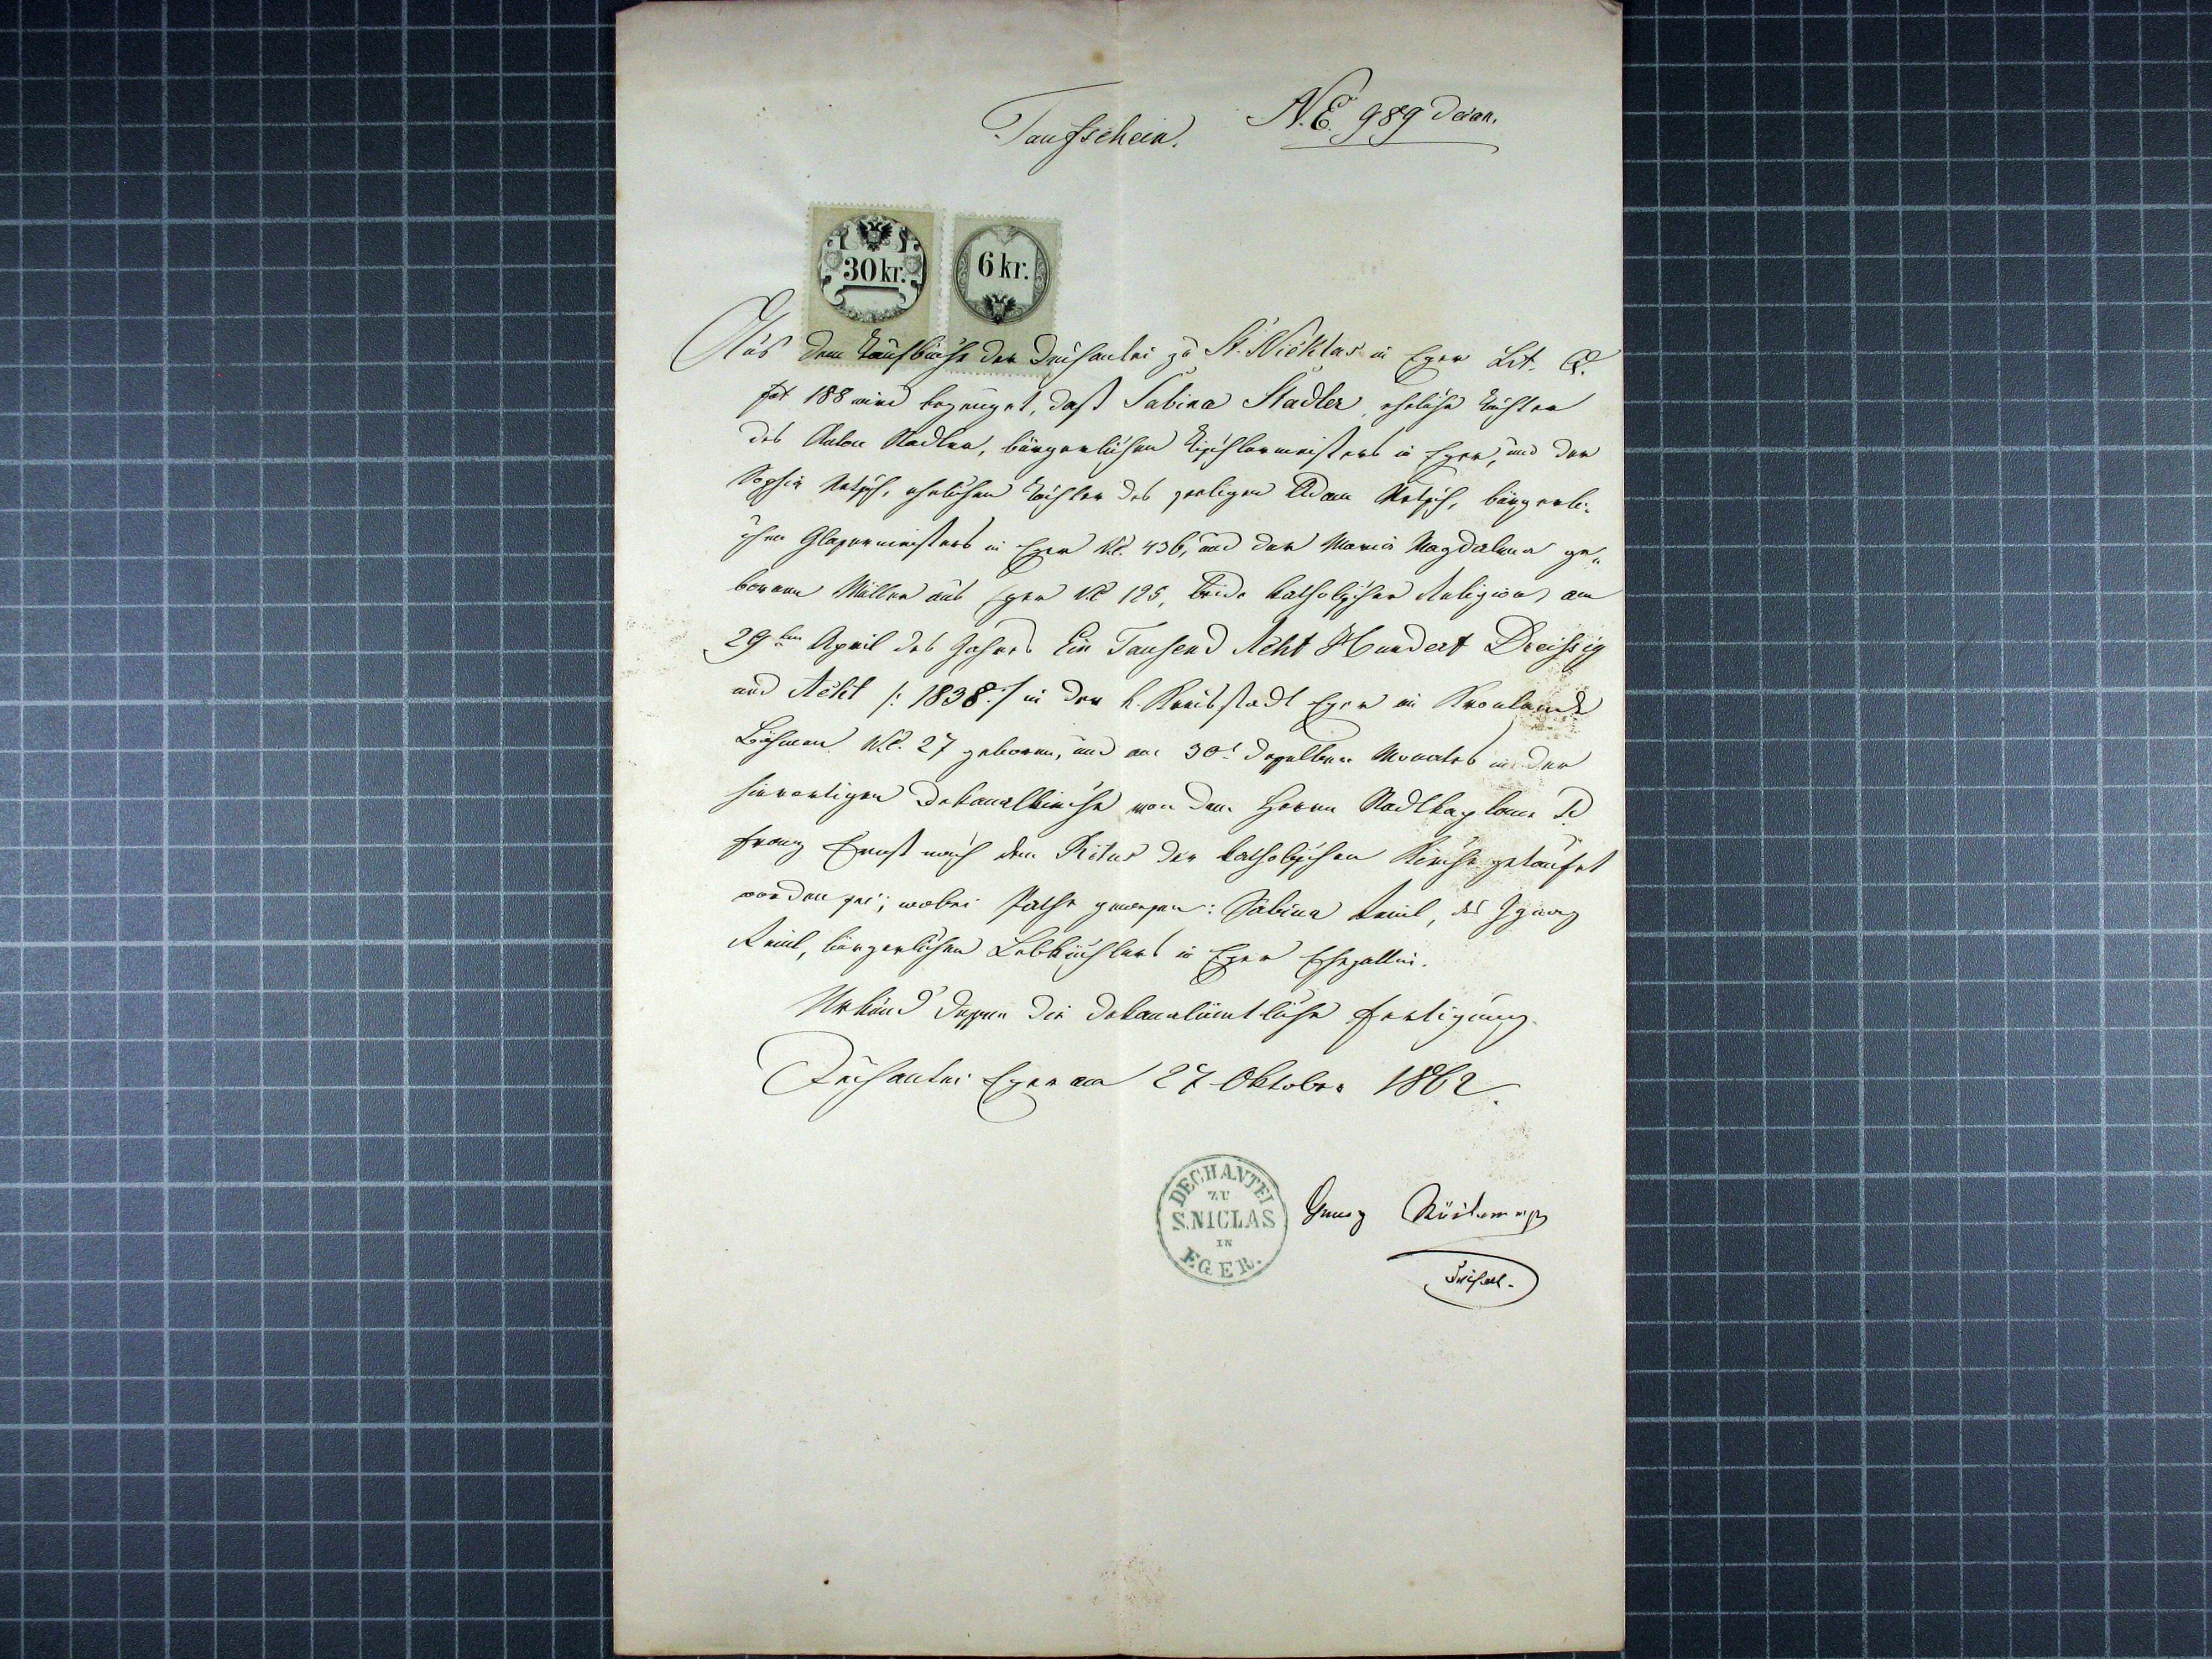 N.E. 989 Decan.
Taufschein.
30 kr. 6 kr.
Aus dem Taufbuche der Dechantei zu St. Nicklas in Eger Lit. Q.
fol 188 wird bezeuget, daß Sabina Stadler, eheliche Tochter
des Anton Stadler, bürgerlichen Tischlermeisters in Eger, und der
Sophia eheliche Tochter des seeligen Adam bürgerli-
chen Glasermeisters in Eger Nc. 436, und der Maria Magdalena ge-
borenen Müller aus Eger Nc 125, beide katholischer Religion, am
29ten April des Jahres Ein Tausend Acht Hundert Dreissig
und Acht /: 1838 :/ in der k. Kreisstadt Eger im Kronlande
Böhmen Nc. 27 geboren, und am 30t desselben Monates in der
hierortigen Dekanalkirche von dem Herrn Stadtkaplane P.
Franz Ernst nach dem Ritus der katholischen Kirche getaufet
worden sei; wobei Pathe gewesen: Sabina des Ignaz
bürgerlichen Lebküchlers in Eger Ehegattin.
Urkund dessen die dekanalämtliche Fertigung.
Dechantei Eger am 27 Oktober 1862.
DECHANTEI
ZU
S. NICLAS
IN
EGER.
Georg
Dechant.